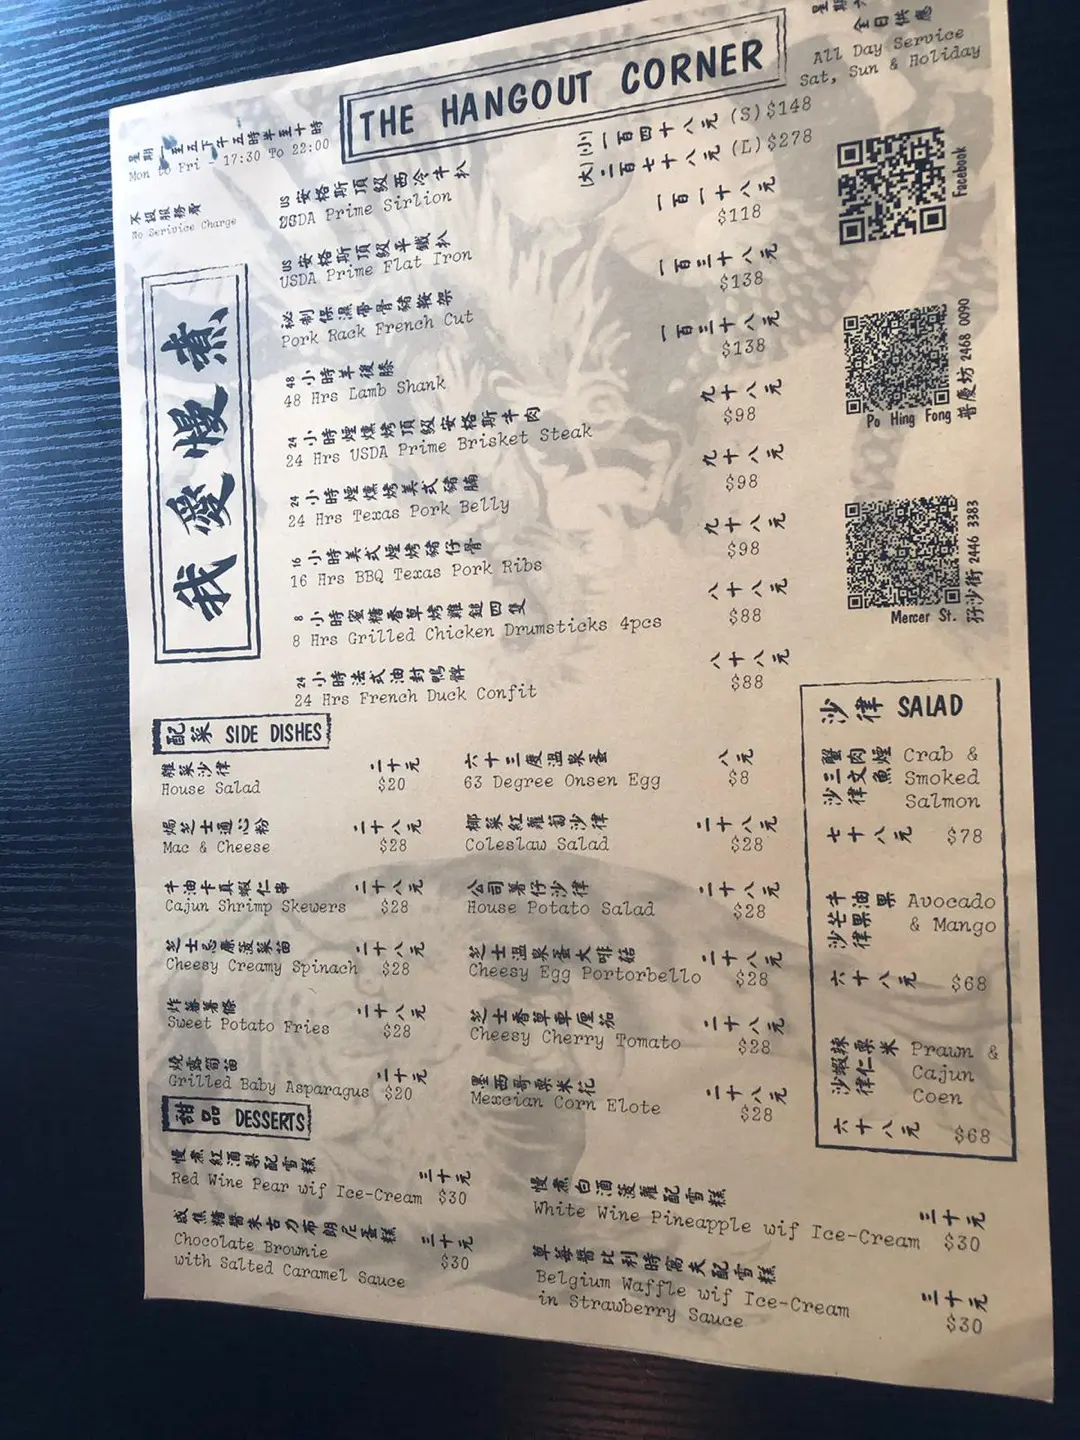 THE HANGOUT CORNER
全日供應
All Day Service
Sat, Sun & Holiday
至五下午五時半至十時
Mon to Fri - 17:30 To 22:00
不設服務費
No Serivice Charge
我愛慢煮
US安格斯頂級西冷牛扒
USDA Prime Sirlion
(小)一百四十八元 (S)$148
(大)二百七十八元 (L)$278
US安格斯頂級平鐵扒
USDA Prime Flat Iron
一百一十八元
$118
秘制保濕帶骨豬鞍架
Pork Rack French Cut
一百三十八元
$138
48小時羊後膝
48 Hrs Lamb Shank
一百三十八元
$138
24小時煙燻烤頂級安格斯牛肉
24 Hrs USDA Prime Brisket Steak
九十八元
$98
24小時煙燻烤美式豬腩
24 Hrs Texas Pork Belly
九十八元
$98
16小時美式煙烤豬仔骨
16 Hrs BBQ Texas Pork Ribs
九十八元
$98
8小時蜜糖香草烤雞鎚四隻
8 Hrs Grilled Chicken Drumsticks 4pcs
八十八元
$88
24小時法式油封鴨髀
24 Hrs French Duck Confit
八十八元
$88
Facebook
Po Hing Fong 普慶坊 2468 0090
Mercer St. 孖沙街 2446 3383
配菜 SIDE DISHES
雜菜沙律
House Salad
二十元
$20
焗芝士通心粉
Mac & Cheese
二十八元
$28
牛油卡真蝦仁串
Cajun Shrimp Skewers
二十八元
$28
芝士忌廉菠菜苗
Cheesy Creamy Spinach
二十八元
$28
炸蕃薯條
Sweet Potato Fries
二十八元
$28
燒露筍苗
Grilled Baby Asparagus
二十元
$20
六十三度溫泉蛋
63 Degree Onsen Egg
八元
$8
椰菜紅蘿蔔沙律
Coleslaw Salad
二十八元
$28
公司薯仔沙律
House Potato Salad
二十八元
$28
芝士溫泉蛋大啡菇
Cheesy Egg Portorbello
二十八元
$28
芝士香草車厘茄
Cheesy Cherry Tomato
二十八元
$28
墨西哥粟米花
Mexcian Corn Elote
二十八元
$28
沙律 SALAD
蟹肉煙
沙三文魚
律
Crab &
Smoked
Salmon
七十八元 $78
牛油果
沙芒果
律
Avocado
& Mango
六十八元 $68
辣粟米
沙蝦仁
律
Prawn &
Cajun
Coen
六十八元 $68
甜品 DESSERTS
慢煮紅酒梨配雪糕
Red Wine Pear wif Ice-Cream
三十元
$30
咸焦糖醬朱古力布朗尼蛋糕
Chocolate Brownie
with Salted Caramel Sauce
三十元
$30
慢煮白酒菠蘿配雪糕
White Wine Pineapple wif Ice-Cream
三十元
$30
草莓醬比利時窩夫配雪糕
Belgium Waffle wif Ice-Cream
in Strawberry Sauce
三十元
$30